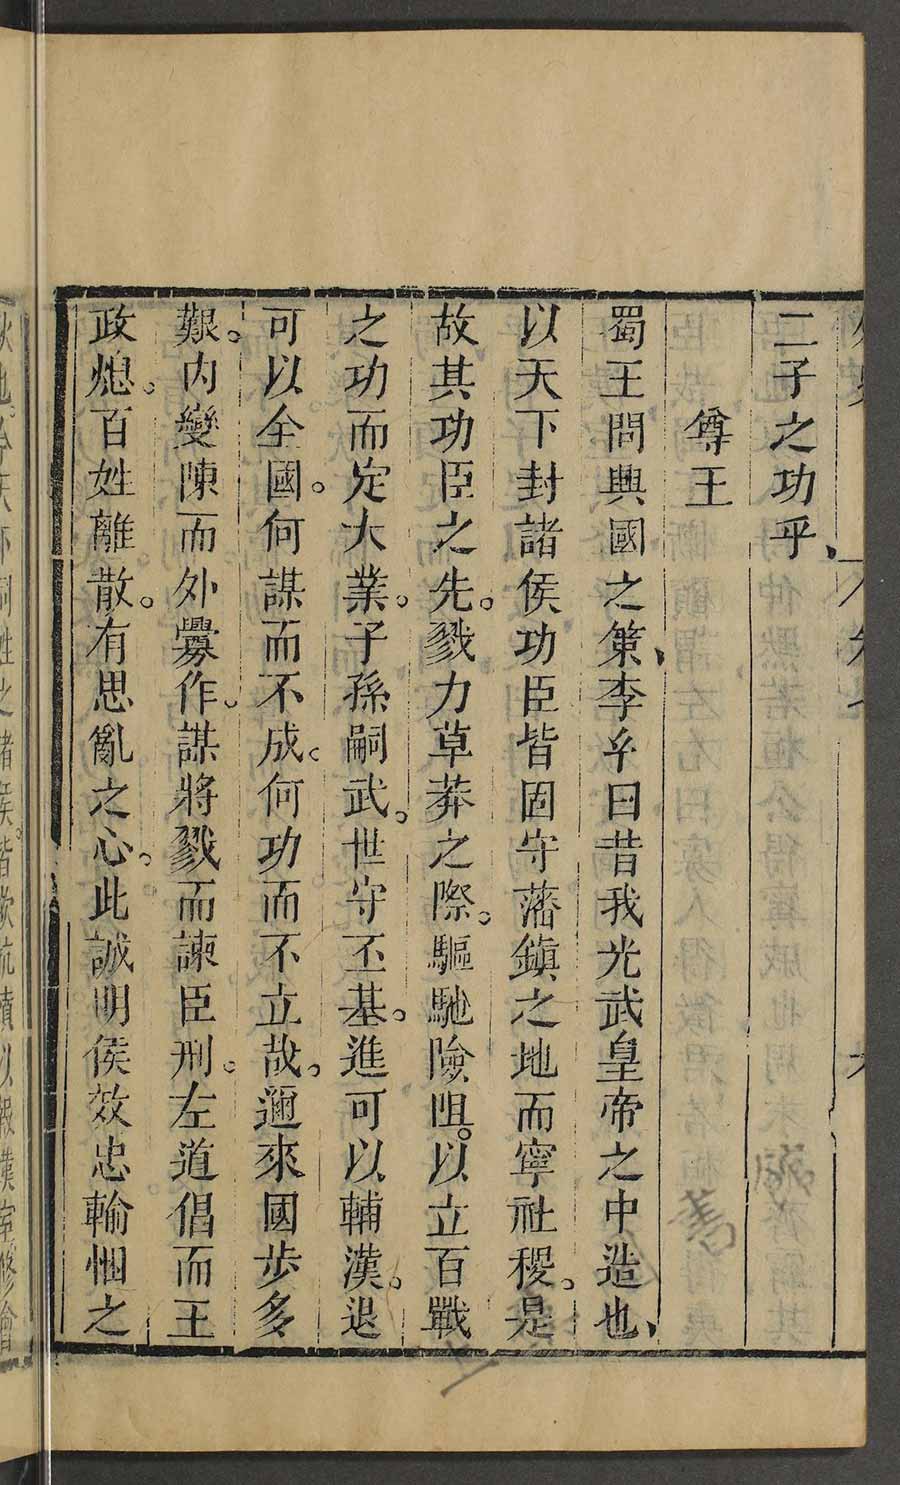 二子之功乎、
尊王
蜀王問興國之策、李𢆯曰昔我光武皇帝之中造也、
以天下封諸侯功臣皆固守藩鎮之地而寧社稷。是
故其功臣之先。戮力草莽之際。驅馳險阻。以立百戰
之功而定大業。子孫嗣武。世守丕基。進可以輔漢。退
可以全國。何謀而不成。何功而不立哉。邇來國步多
艱。内變陳而外釁作。謀將戮而諫臣刑。左道倡而王
政熄。百姓離散。有思亂之心。此誠明侯效忠輸悃之